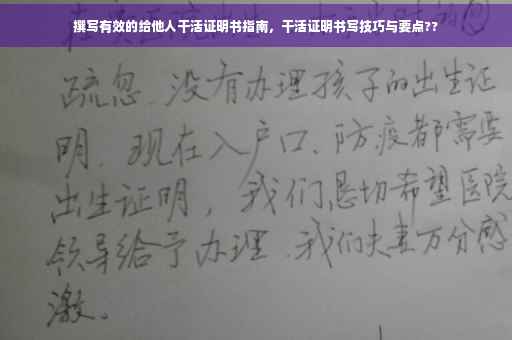 撰写有效的给他人干活证明书指南，干活证明书写技巧与要点??
疏忽、没有办理孩子的出生证
明、现在入户口、防疫都需要
出生证明，我们恳切希望医院
领导给予办理、我们夫妻万分感
激。